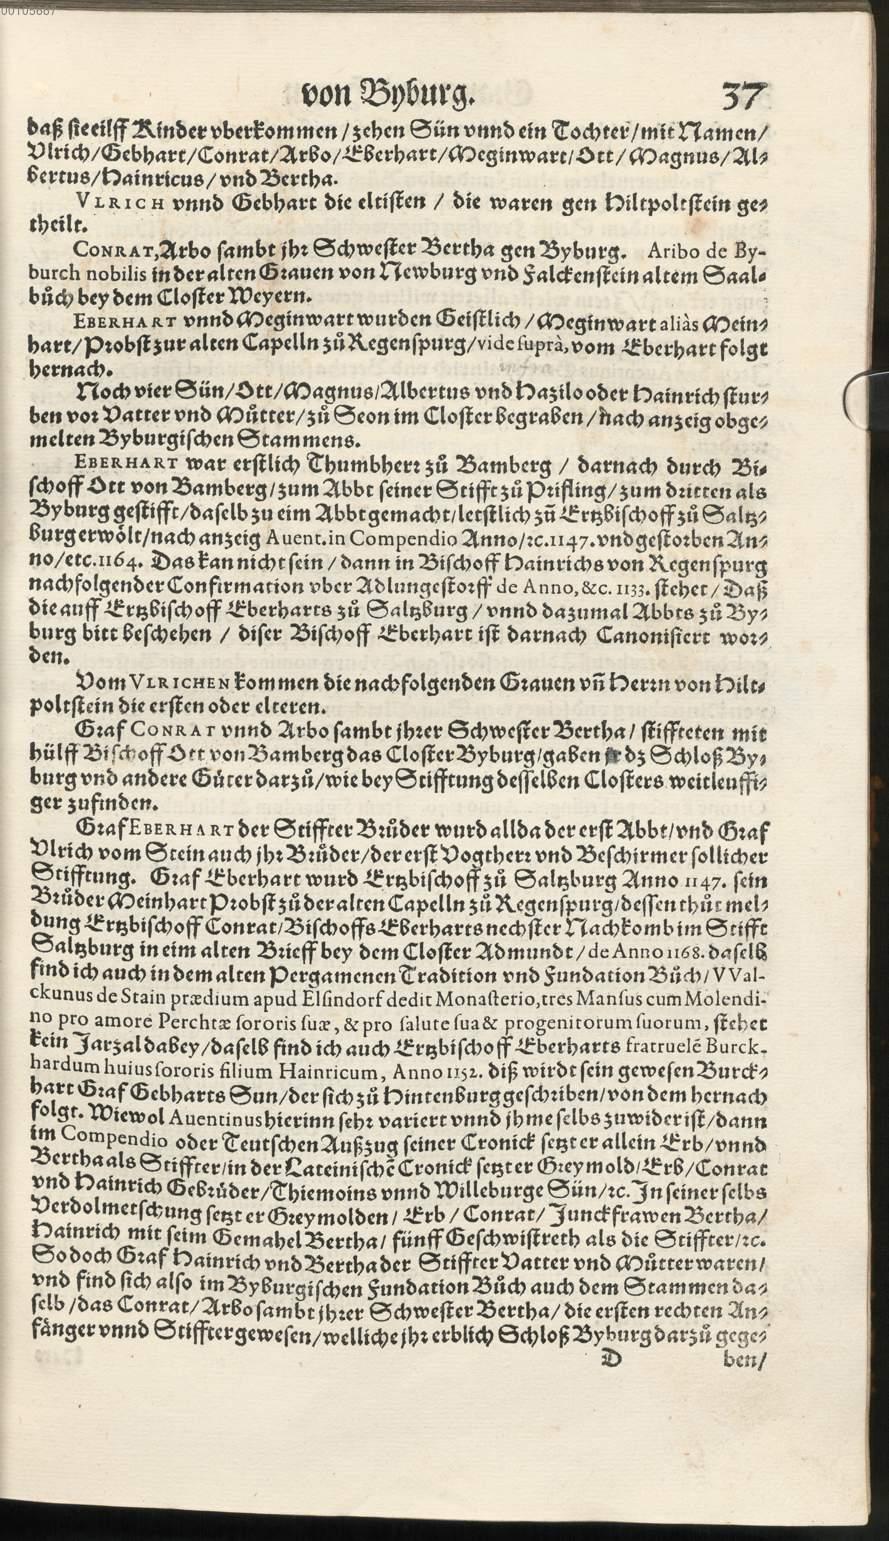 00103887
von Byburg. 37
daß sie eilff Kinder vberkommen / zehen Sün vnnd ein Tochter / mit Namen /
Vlrich / Gebhart / Conrat / Arbo / Eberhart / Meginwart / Ott / Magnus / Al-
bertus / Hainricus / vnd Bertha.
VLRICH vnnd Gebhart die eltisten / die waren gen Hiltpoltstein ge-
theilt.
CONRAT, Arbo sambt jhr Schwester Bertha gen Byburg. Aribo de By-
burch nobilis in der alten Grauen von Newburg vnd Falckenstein altem Saal-
bůch bey dem Closter Weyern.
EBERHART vnnd Meginwart wurden Geistlich / Meginwart aliàs Mein-
hart / Probst zur alten Capelln zů Regenspurg / vide suprà, vom Eberhart folgt
hernach.
Noch vier Sün / Ott / Magnus / Albertus vnd Hazilo oder Hainrich stur-
ben vor Vatter vnd Můtter / zů Seon im Closter begraben / nach anzeig obge-
melten Byburgischen Stammens.
EBERHART war erstlich Thumbherr zů Bamberg / darnach durch Bi-
schoff Ott von Bamberg / zum Abbt seiner Stifft zů Prifling / zum dritten als
Byburg gestifft / daselb zu eim Abbt gemacht / letstlich zů Ertzbischoff zů Saltz-
burg erwölt / nach anzeig Auent. in Compendio Anno / ꝛc. 1147. vnd gestorben An-
no / etc. 1164. Das kan nicht sein / dann in Bischoff Hainrichs von Regenspurg
nachfolgender Confirmation vber Adlungestorff de Anno, &c. 1133. stehet / Daß
die auff Ertzbischoff Eberharts zů Saltzburg / vnnd dazumal Abbts zů By-
burg bitt beschehen / diser Bischoff Eberhart ist darnach Canonisiert wor-
den.
Vom VLRICHEN kommen die nachfolgenden Grauen vñ Herrn von Hilt-
poltstein die ersten oder elteren.
Graf CONRAT vnnd Arbo sambt jhrer Schwester Bertha / stiffteten mit
hülff Bischoff Ott von Bamberg das Closter Byburg / gaben dz Schloß By-
burg vnd andere Güter darzů / wie bey Stifftung desselben Closters weitleuffi-
ger zufinden.
Graf EBERHART der Stiffter Brůder wurd allda der erst Abbt / vnd Graf
Vlrich vom Stein auch jhr Brůder / der erst Vogtherr vnd Beschirmer sollicher
Stifftung. Graf Eberhart wurd Ertzbischoff zů Saltzburg Anno 1147. sein
Brůder Meinhart Probst zů der alten Capelln zů Regenspurg / dessen thůt mel-
dung Ertzbischoff Conrat / Bischoffs Eberharts nechster Nachkomb im Stifft
Saltzburg in eim alten Brieff bey dem Closter Admundt / de Anno 1168. daselb
find ich auch in dem alten Pergamenen Tradition vnd Fundation Bůch / VVal-
ckunus de Stain prædium apud Elsindorf dedit Monasterio, tres Mansus cum Molendi-
no pro amore Perchtæ sororis suæ, & pro salute sua & progenitorum suorum, stehet
kein Jarzal dabey / daselb find ich auch Ertzbischoff Eberharts fratruelẽ Burck-
hardum huius sororis filium Hainricum, Anno 1152. diß wirdt sein gewesen Burck-
hart Graf Gebharts Sun / der sich zů Hintenburg geschriben / von dem hernach
folgt. Wiewol Auentinus hierinn sehr variert vnnd jhme selbs zuwider ist / dann
im Compendio oder Teutschen Außzug seiner Cronick setzt er allein Erb / vnnd
Bertha als Stiffter / in der Lateinischẽ Cronick setzt er Greymold / Erb / Conrat
vnd Hainrich Gebrůder / Thiemoins vnnd Willeburge Sün / ꝛc. In seiner selbs
Verdolmetschung setzt er Greymolden / Erb / Conrat / Junckfrawen Bertha /
Hainrich mit seim Gemahel Bertha / fünff Geschwistreth als die Stiffter / ꝛc.
So doch Graf Hainrich vnd Bertha der Stiffter Vatter vnd Můtter waren /
vnd find sich also im Byburgischen Fundation Bůch auch dem Stammen da-
selb / das Conrat / Arbo sambt jhrer Schwester Bertha / die ersten rechten An-
fänger vnnd Stiffter gewesen / welliche jhr erblich Schloß Byburg darzů gege-
D ben /